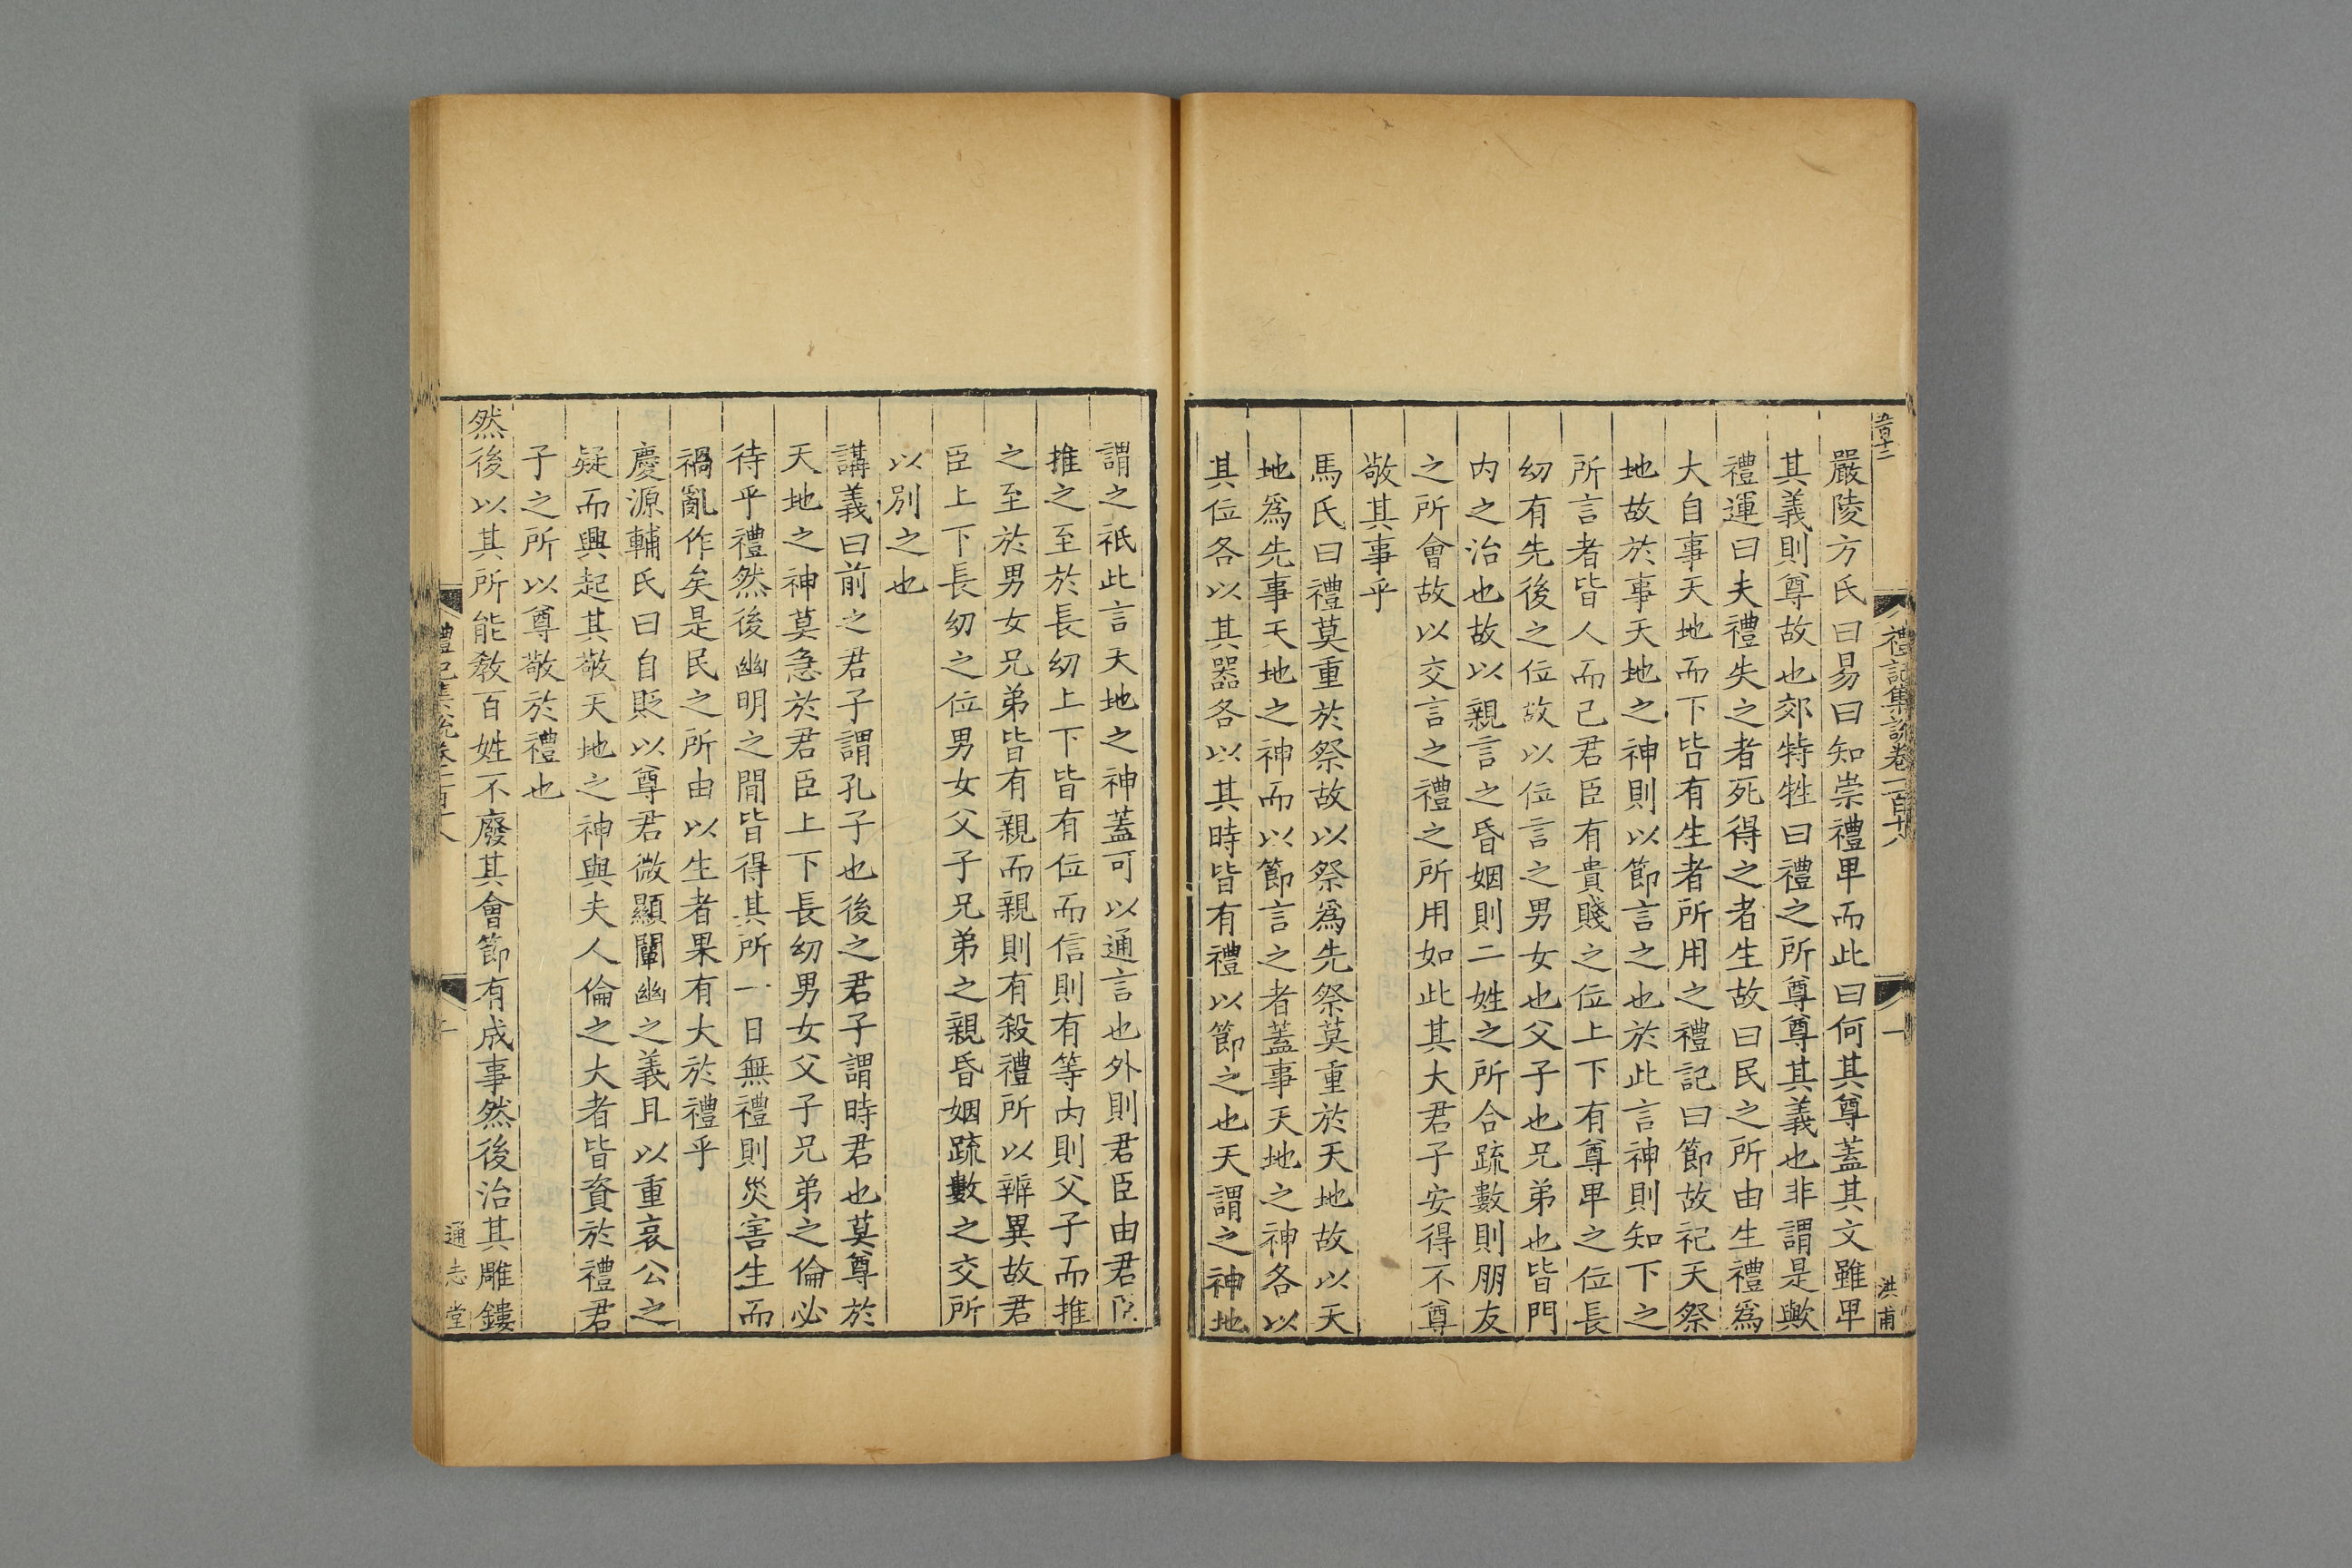 五百十二
禮記集說卷一百十八
一
洪甫
嚴陵方氏曰易曰知崇禮卑而此曰何其尊蓋其文雖卑
其義則尊故也郊特牲曰禮之所尊尊其義也非謂是歟
禮運曰夫禮失之者死得之者生故曰民之所由生禮爲
大自事天地而下皆有生者所用之禮記曰節故祀天祭
地故於事天地之神則以節言之也於此言神則知下之
所言者皆人而已君臣有貴賤之位上下有尊卑之位長
幼有先後之位故以位言之男女也父子也兄弟也皆門
內之治也故以親言之昏姻則二姓之所合疏數則朋友
之所會故以交言之禮之所用如此其大君子安得不尊
敬其事乎
馬氏曰禮莫重於祭故以祭爲先祭莫重於天地故以天
地爲先事天地之神而以節言之者蓋事天地之神各以
其位各以其器各以其時皆有禮以節之也天謂之神地
謂之祇此言天地之神蓋可以通言也外則君臣由君臣
推之至於長幼上下皆有位而信則有等內則父子而推
之至於男女兄弟皆有親而親則有殺禮所以辨異故君
臣上下長幼之位男女父子兄弟之親昏姻疏數之交所
以別之也
講義曰前之君子謂孔子也後之君子謂時君也莫尊於
天地之神莫急於君臣上下長幼男女父子兄弟之倫必
待乎禮然後幽明之閒皆得其所一日無禮則災害生而
禍亂作矣是民之所由以生者果有大於禮乎
慶源輔氏曰自貶以尊君微顯闡幽之義且以重哀公之
疑而興起其敬天地之神與夫人倫之大者皆資於禮君
子之所以尊敬於禮也
然後以其所能敎百姓不廢其會節有成事然後治其雕鏤
禮記集說卷一百十八
通志堂